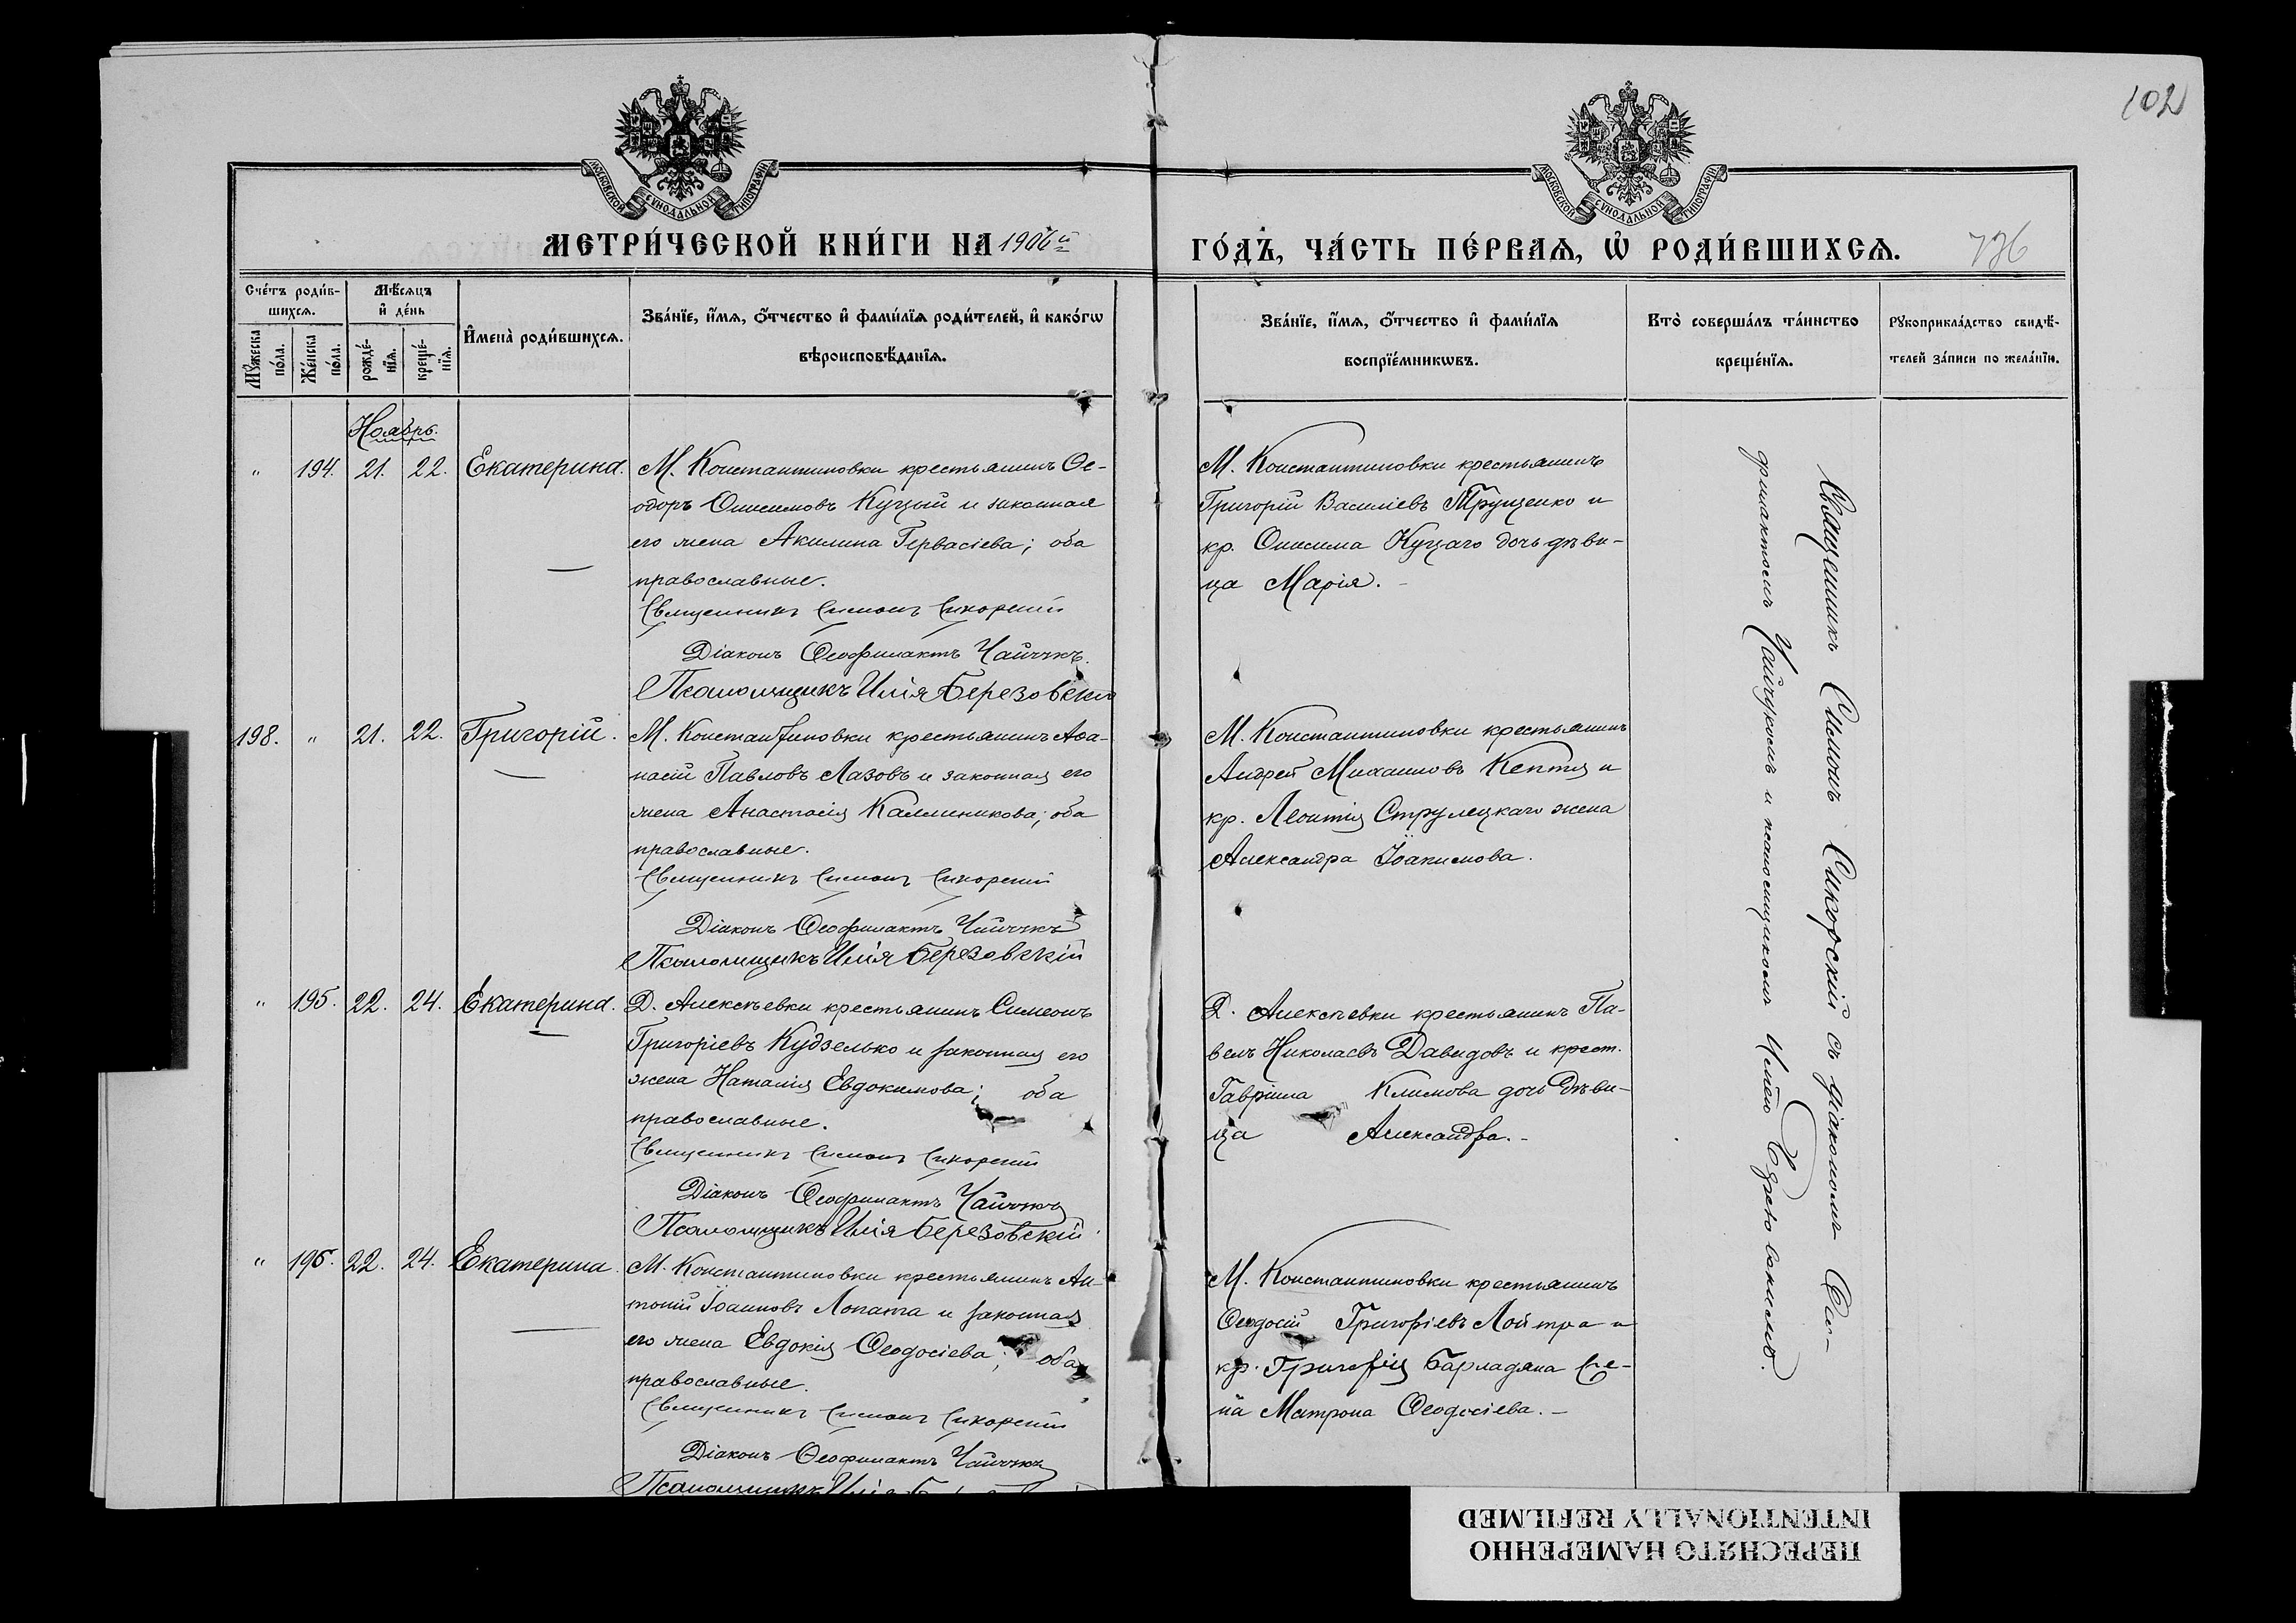 102
МОСКОВСКОЙ СѴНОДАЛЬНОЙ ТИПОГРАФІИ
МОСКОВСКОЙ СѴНОДАЛЬНОЙ ТИПОГРАФІИ
МЕТРИ́ЧЕСКОЙ КНИ́ГИ НА 1906й
ГО́ДЪ, ЧА́СТЬ ПЕ́РВАѦ, Ѡ РОДИ́ВШИХСѦ.
736
Сче́тъ роди́в-
шихсѧ.
Мѣ́сѧцъ
и҆ де́нь
Мꙋ́жеска
по́ла.
Же́нска
по́ла.
рожде́-
нїѧ.
креще́-
нїѧ.
И҆мена̀ роди́вшихсѧ.
Зва́нїе, и҆́мѧ, ѻ҆́тчество и҆ фами́лїѧ роди́телей, и҆ како́гѡ
вѣроисповѣ́данїѧ.
Зва́нїе, и҆́мѧ, ѻ҆́тчество и҆ фами́лїѧ
воспрїе́мникѡвъ.
Кто̀ соверша́лъ та́инство
креще́нїѧ.
Рꙋкоприкла́дство свидѣ́-
телей за́писи по жела́нїю.
Ноябрь.
" 194. 21. 22. Екатерина.
М. Константиновки крестьянинъ Ѳе-
одоръ Онисимовъ Куцый и законная
его жена Акилина Гервасіева; оба
православные.
Священникъ Симонъ Сикорскій
Діаконъ Ѳеофилактъ Чайчукъ.
Псаломщикъ Илія Березовскій
М. Константиновки крестьянинъ
Григорій Василіевъ Трущенко и
кр. Онисима Куцаго дочь дѣви-
ца Марія.
198. " 21. 22. Григорій.
М. Константиновки крестьянинъ Аѳа-
насій Павловъ Лазовъ и законная его
жена Анастасія Каллиникова; оба
православные.
Священникъ Симонъ Сикорскій
Діаконъ Ѳеофилактъ Чайчукъ
Псаломщикъ Илія Березовскій
М. Константиновки крестьянинъ
Андрей Михаиловъ Кептя и
кр. Леонтія Струлецкаго жена
Александра Іоакимова.
" 195. 22. 24. Екатерина.
Д. Алексѣевки крестьянинъ Симеонъ
Григоріевъ Кудзелько и законная его
жена Наталія Евдокимова; оба
православные.
Священникъ Симонъ Сикорскій
Діаконъ Ѳеофилактъ Чайчукъ
Псаломщикъ Илія Березовскій
Д. Алексѣевки крестьянинъ Па-
велъ Николаевъ Давидовъ и крест.
Гавріила Климова дочь дѣви-
ца Александра.
" 196. 22. 24. Екатерина.
М. Константиновки крестьянинъ Ан-
тоній Іоанновъ Лопата и законная
его жена Евдокія Ѳеодосіева; оба
православные.
Священникъ Симонъ Сикорскій
Діаконъ Ѳеофилактъ Чайчукъ
Псаломщикъ Илія
М. Константиновки крестьянинъ
Ѳеодосій Григоріевъ Лойтра и
кр. Григорія Барладяна же-
на Матрона Ѳеодосіева.
Священникъ Симонъ Сикорскій съ діакономъ Ѳео-
филактомъ Чайчукомъ и псаломщикомъ Иліею
ПЕРЕСНЯТО НАМЕРЕННО
INTENTIONALLY REFILMED